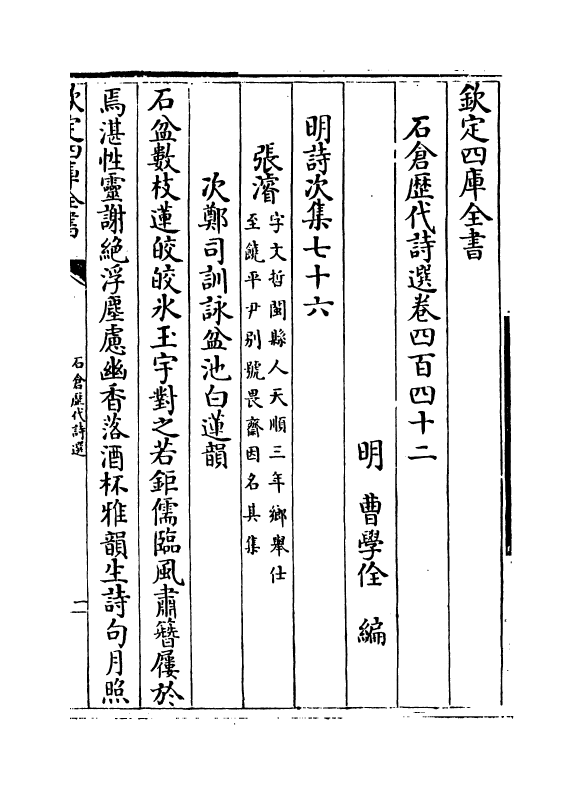 欽定四庫全書
石倉歷代詩選卷四百四十二
明 曹學佺 編
明詩次集七十六
張濬 字文哲閩縣人天順三年鄉舉仕
至饒平尹别號畏齋因名其集
次鄭司訓詠盆池白蓮韻
石盆數枝蓮皎皎氷玉宇對之若鉅儒臨風肅簪屨於
焉湛性靈謝絶浮塵慮幽香落酒杯雅韻生詩句月照
欽定四庫全書
石倉歷代詩選
一